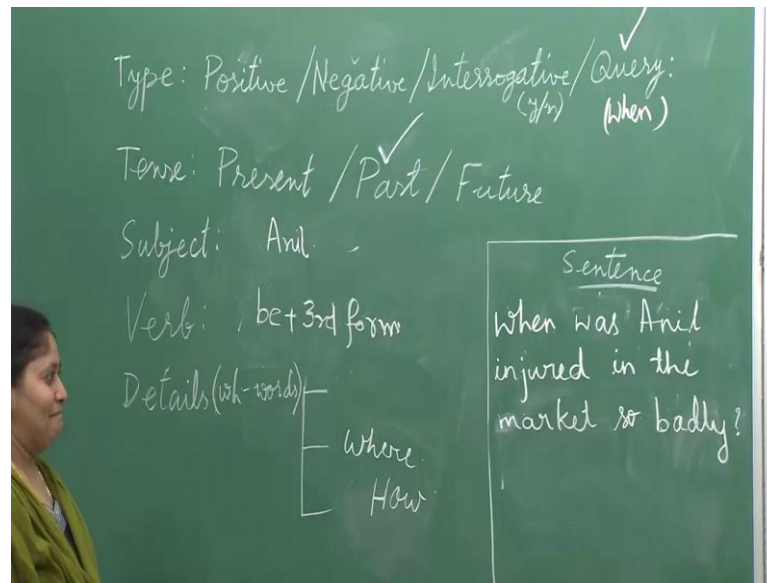 Type: Positive / Negative / Interrogative / Query:
(y/n) (When)
Tense: Present / Past / Future
Subject: Anil
Verb: be + 3rd form
Details (wh-words)
Where
How
Sentence
When was Anil
injured in the
market so badly?